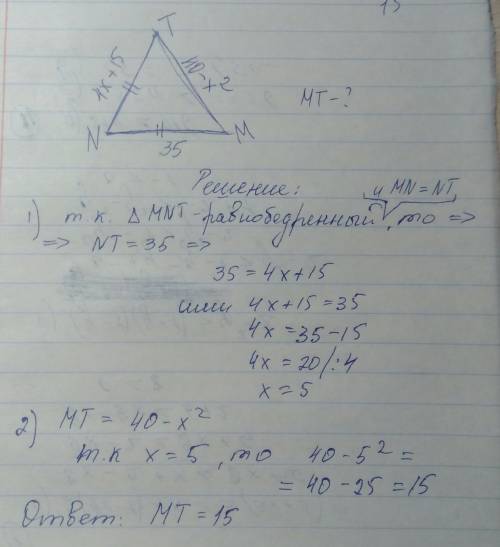 13
T
4x+15
40-x²
MT-?
N
M
35
Решение:
и MN=NT
1) т.к. △MNT-равнобедренный, то =>
=> NT=35 =>
35=4x+15
или 4x+15=35
4x=35-15
4x=20/:4
x=5
2) MT= 40-x²
т.к x=5, то 40-5²=
=40-25=15
Ответ: MT=15